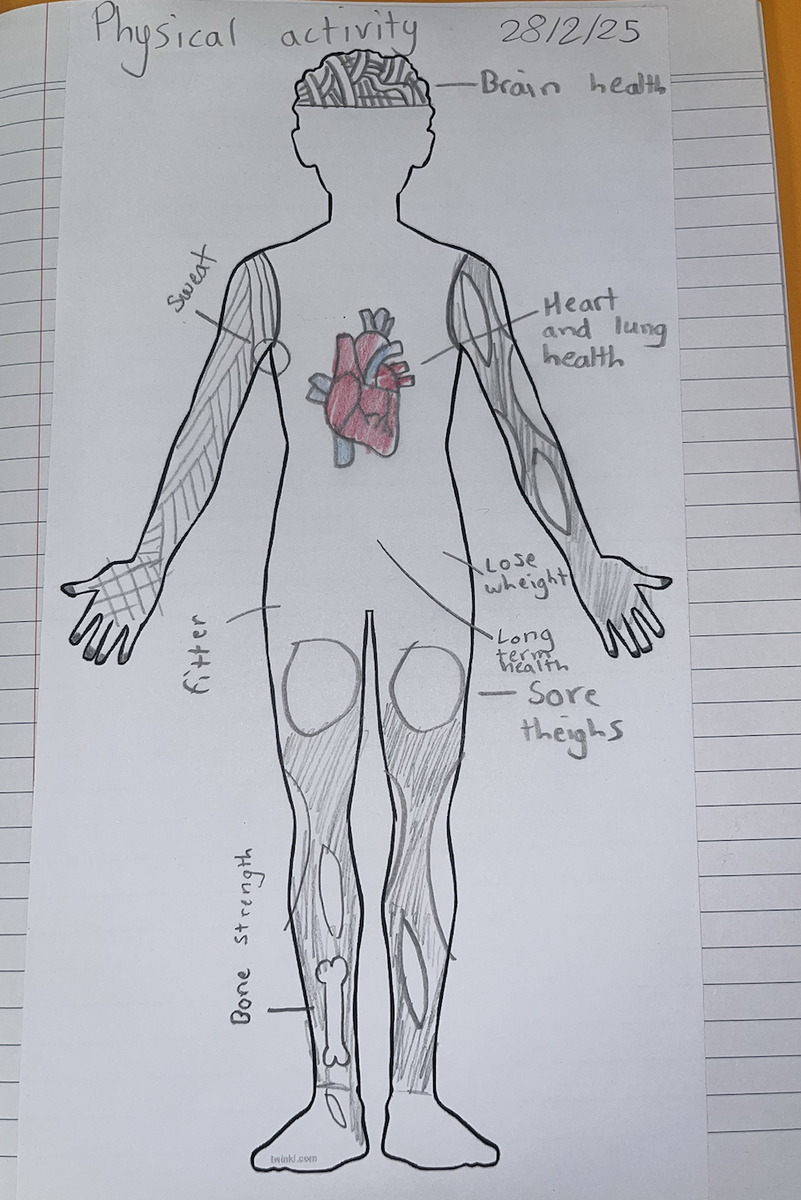 Physical activity 28/2/25
Brain health
Sweat
Heart
and lung
health
Lose
wheight
Long
term
health
fitter
Sore
theighs
Bone strength
twinkl.com